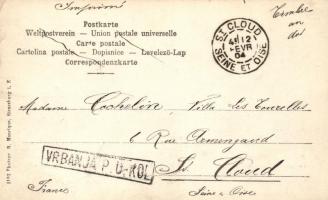 Imprimé
Timbre
au
dos
Postkarte
Weltpostverein — Union postale universelle
Carte postale
Cartolina postale — Dopisnice — Levelező-Lap
Correspondenzkarte
ST CLOUD
12
FEVR
04
SEINE ET OISE
Madame Cochelin, Villa les Tourelles
6 Rue Armengaud
St. Cloud
VRBANJA P. U-KOL
France
Seine & Oise